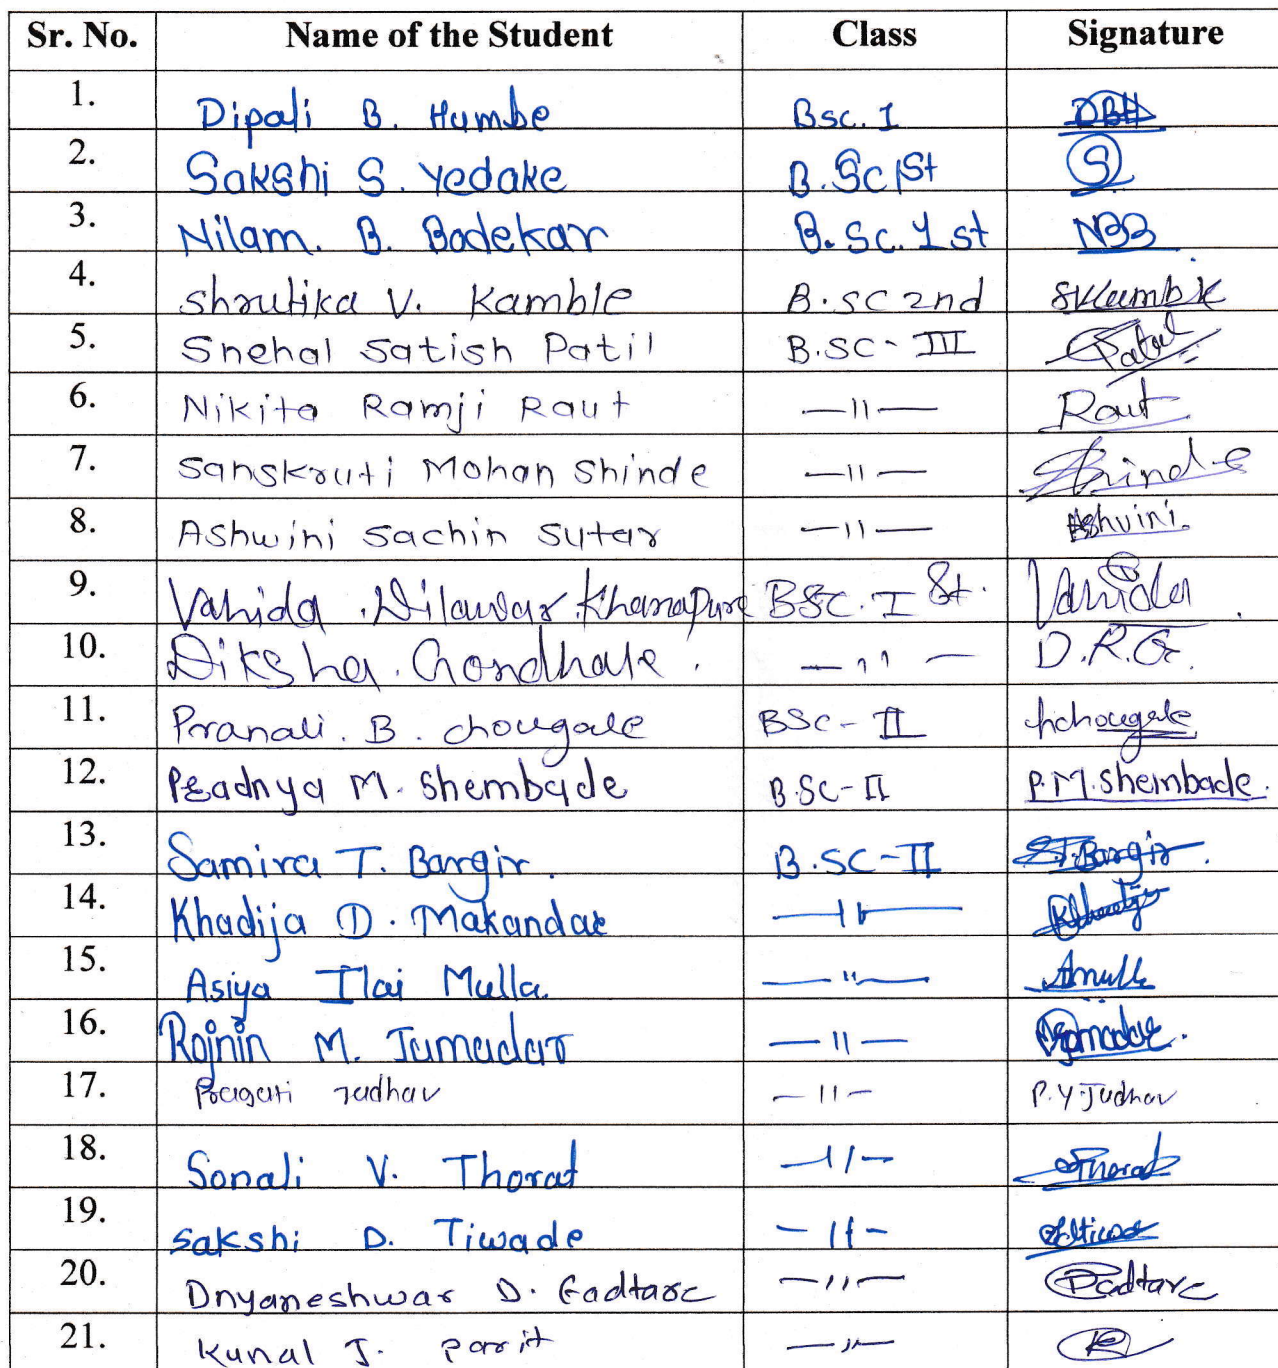 Sr. No. Name of the Student Class Signature
1. Dipali B. Humbe Bsc. I DBH
2. Sakshi S. Yedake B.Sc 1st S
3. Nilam. B. Bodekar B.Sc. 1st NBB
4. Shrutika V. Kamble B.SC 2nd SVKamble
5. Snehal Satish Patil B.SC- III Patil
6. Nikita Ramji Raut —11— Raut
7. Sanskruti Mohan Shinde —11— Shinde
8. Ashwini Sachin Sutar —11— Ashvini.
9. Vahida .Dilawar Khanapure BSC. I St. Vahida
10. Diksha. Gondhale. —11— D.R.G.
11. Pranali. B. chougale BSc- II Pchougale
12. Pradnya M. Shembade B.SC-II P.M.Shembade.
13. Samira T. Bargir. B.SC-II S.T.Bargir.
14. Khadija D. Makandar —11—
15. Asiya Ilai Mulla. —11— Amull
16. Rojnin M. Jamadar —11— Jamadar.
17. Pragati Jadhav —11— P.Y.Jadhav
18. Sonali V. Thorat —11— Thorat
19. Sakshi D. Tiwade —11—
20. Dnyaneshwar D. Gadtare —11— Gadtare
21. Kunal J. Parit —11— K